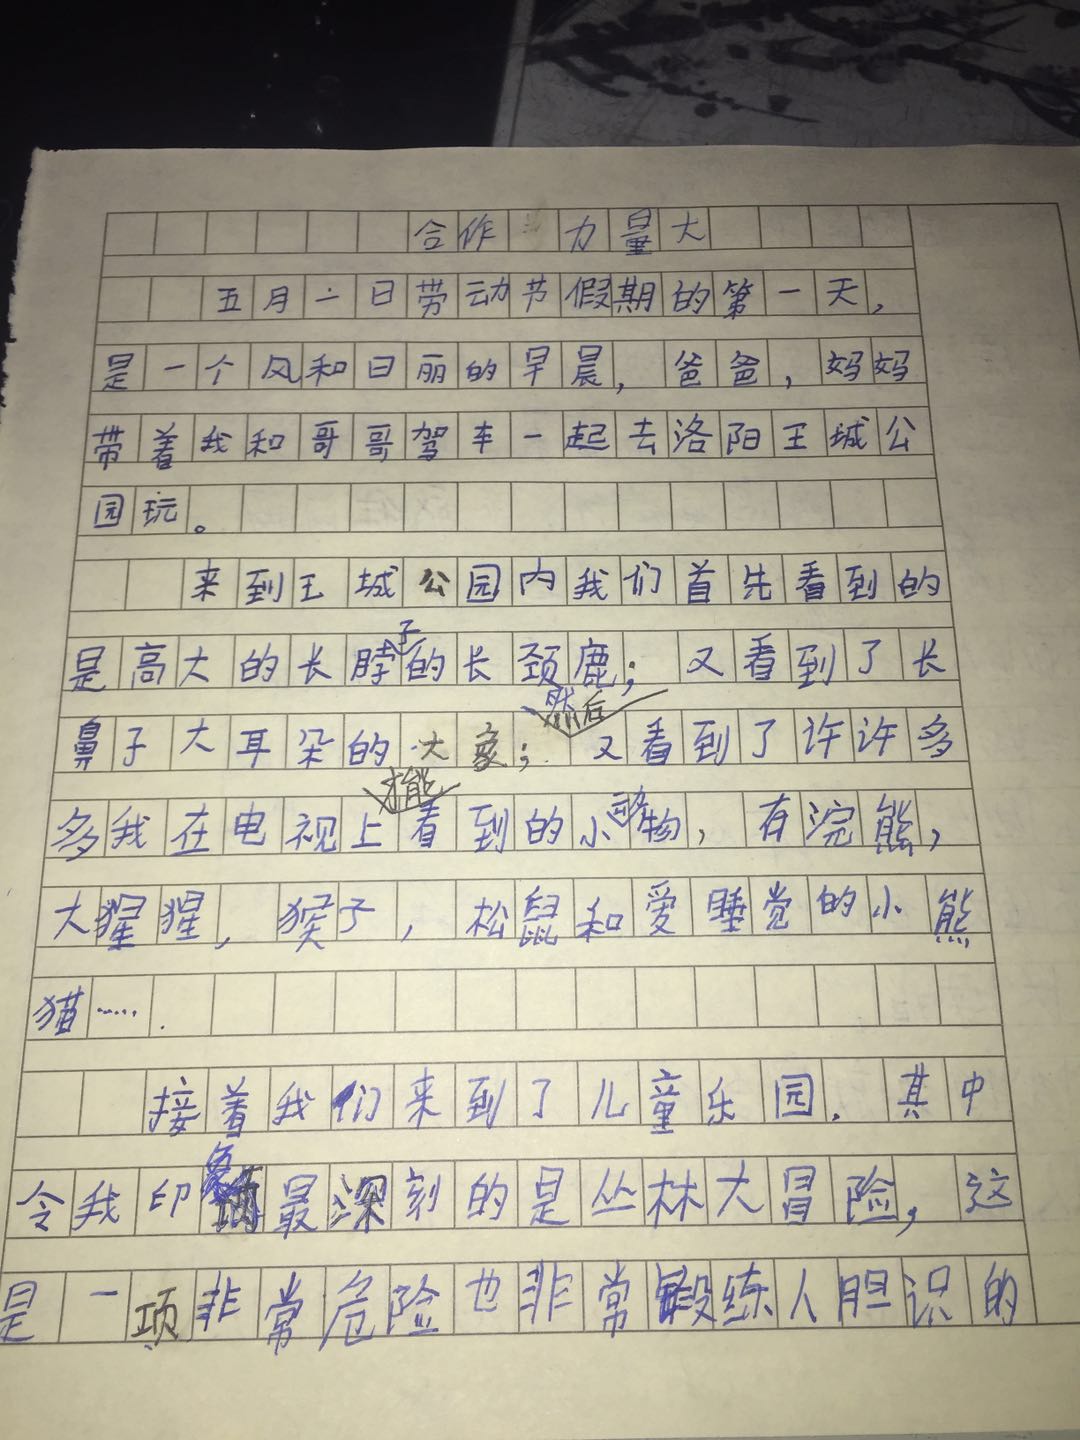 合作力量大
五月一日劳动节假期的第一天，
是一个风和日丽的早晨，爸爸，妈妈
带着我和哥哥驾车一起去洛阳王城公
园玩。
来到王城公园内我们首先看到的
是高大的长脖子的长颈鹿；又看到了长
鼻子大耳朵的大象；然后又看到了许许多
多我在电视上才能看到的小动物，有浣熊，
大猩猩，猴子，松鼠和爱睡觉的小熊
猫……
接着我们来到了儿童乐园．其中
令我印象最深刻的是丛林大冒险，这
是一项非常危险也非常锻练人胆识的